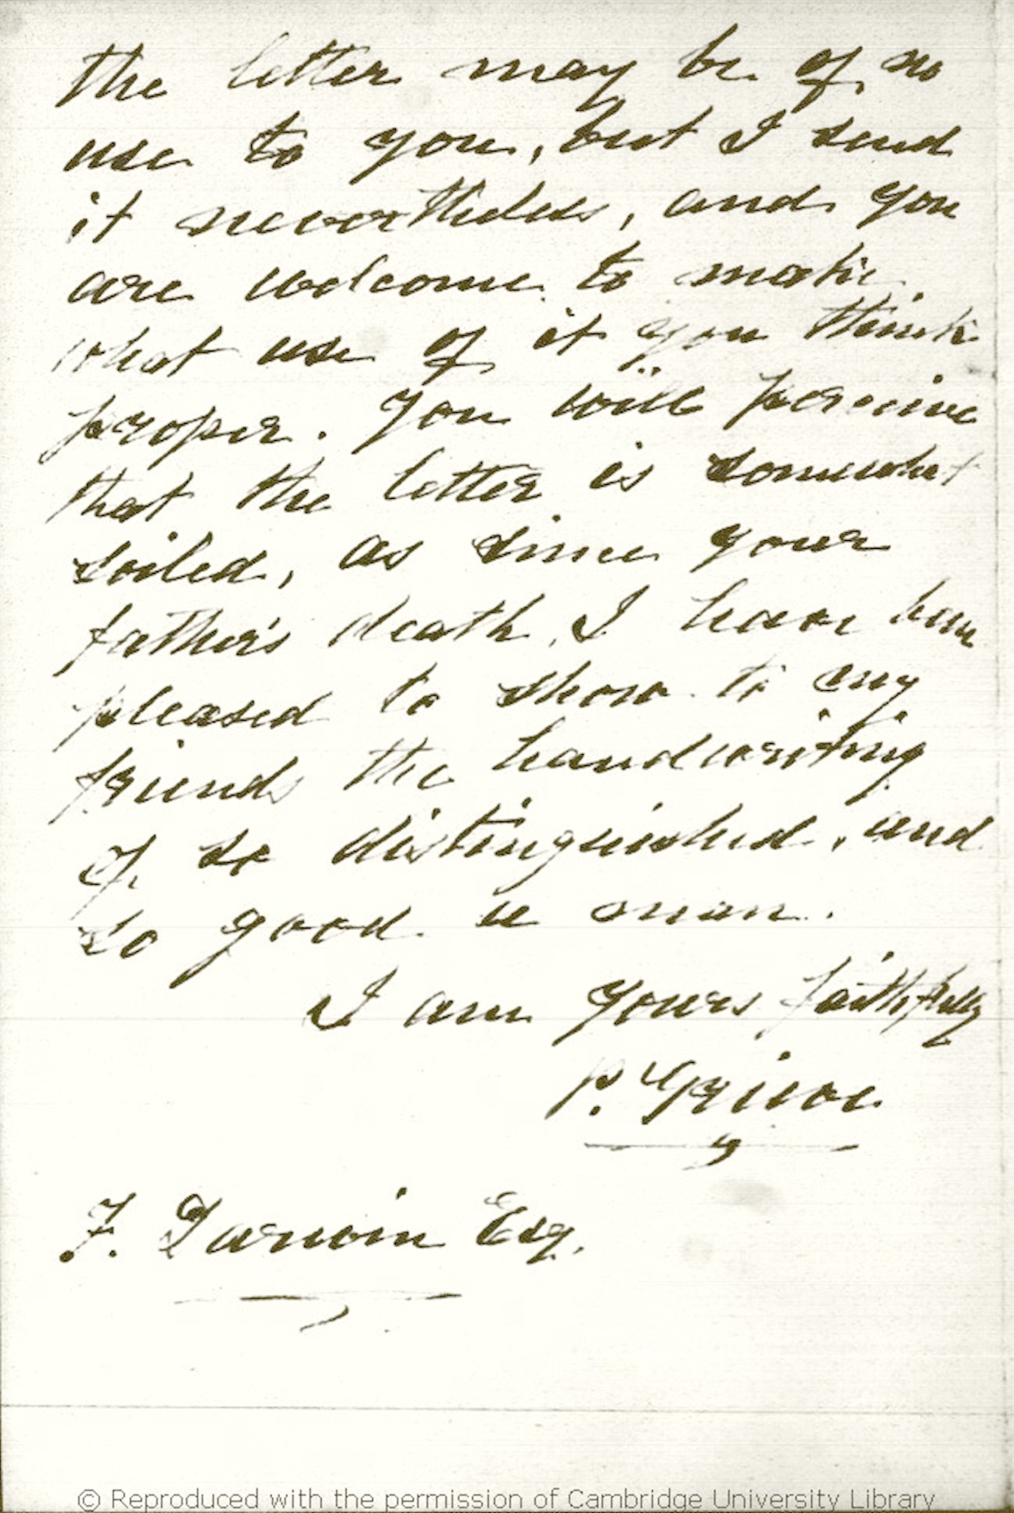 the letter may be of no
use to you, but I send
it nevertheless, and you
are welcome to make
what use of it you think
proper. You will perceive
that the letter is somewhat
soiled, as since your
father's death, I have been
pleased to show to my
friends the handwriting
of so distinguished, and
so good a man.
I am yours faithfully
P.
F. Darwin Esq.
© Reproduced with the permission of Cambridge University Library